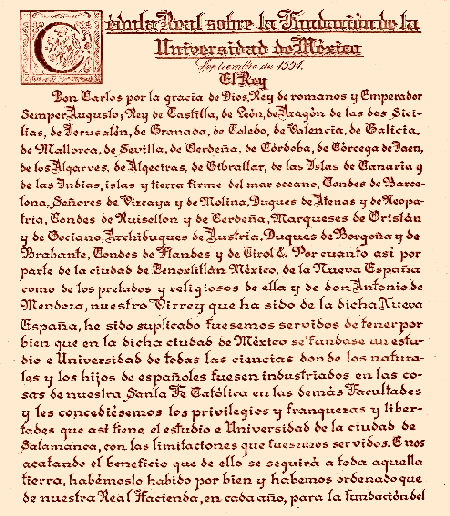 Cédula Real sobre la Fundación de la
Universidad de México
Septiembre de 1551.
El Rey
Don Carlos por la gracia de Dios, Rey de romanos y Emperador
Semper Augusto; Rey de Castilla, de León, de Aragón de las dos Sici-
lias, de Jerusalén, de Granada, de Toledo, de Valencia, de Galicia,
de Mallorca, de Sevilla, de Cerdeña, de Córdoba, de Córcega de Jaen,
de los Algarves, de Algeciras, de Gibraltar, de las Islas de Canaria y
de las Indias, islas y tierra firme del mar oceano, Condes de Barce-
lona, Señores de Vizcaya y de Molina, Duques de Atenas y de Neopa-
tria, Condes de Ruisellon y de Cerdeña, Marqueses de Oristán
y de Gociano, Archiduques de Austria, Duques de Borgoña y de
Brabante, Condes de Flandes y de Tirol &. Por cuanto así por
parte de la ciudad de Tenoxtitlán México, de la Nueva España
como de los prelados y religiosos de ella y de don Antonio de
Mendoza, nuestro Virrey que ha sido de la dicha Nueva
España, ha sido suplicado fuesemos servidos de tener por
bien que en la dicha ciudad de México se fundase un estu-
dio e Universidad de todas las ciencias donde los natura-
les y los hijos de españoles fuesen industriados en las co-
sas de nuestra Santa Fe Católica en las demás Facultades
y les concediésemos los privilegios y franquezas y liber-
tades que así tiene el estudio e Universidad de la ciudad de
Salamanca, con las limitaciones que fuesemos servidos. E nos
acatando el beneficio que de ello se seguirá a toda aquella
tierra, habémoslo habido por bien y habemos ordenado que
de nuestra Real Hacienda, en cada año, para la fundación del